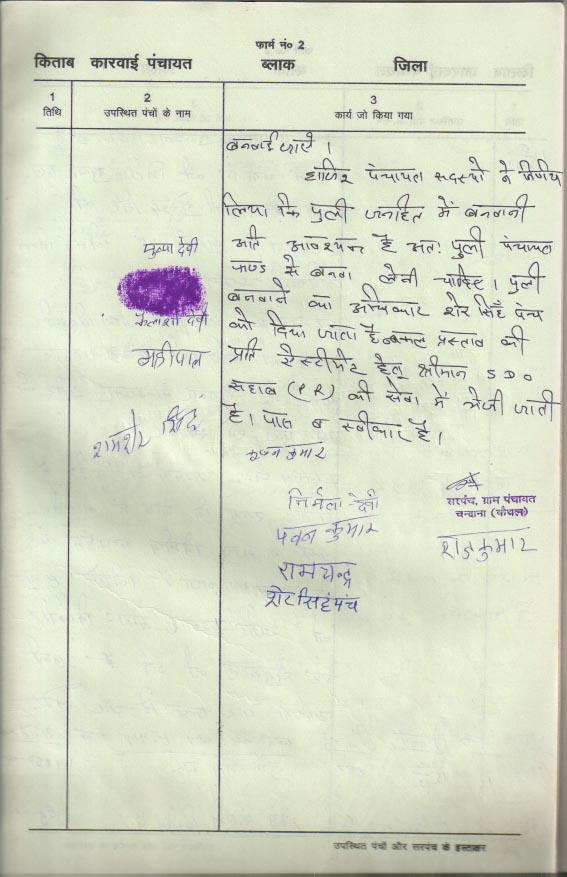 फार्म नं० 2
किताब कारवाई पंचायत ब्लाक जिला
1 2 3
तिथि उपस्थित पंचों के नाम कार्य जो किया गया
बनवाई जाऐ ।
हाजिर पंचायत सदस्यो ने निर्णय
लिया कि पुली जनहित में बनवानी
अति आवश्यक है अतः पुली पंचायत
फण्ड से बनवा लेनी चाहिए। पुली
बनवाने का अधिकार शेर सिहँ पंच
को दिया जाता है नकल प्रस्ताव की
प्रति ऐस्टीमेट हेतू श्रीमान S D O
साहब (P R) की सेवा में भेजी जाती
है। पास व स्वीकार है।
देवी
कैलाशो देवी
महीपाल
शमशेर सिंह
कुमार
निर्मला देवी
पवन कुमार
रामचन्द्र
शेर सिंह पंच
सरपंच, ग्राम पंचायत
चन्दाना (कैथल)
राजकुमार
उपस्थित पंचों और सरपंच के हस्ताक्षर